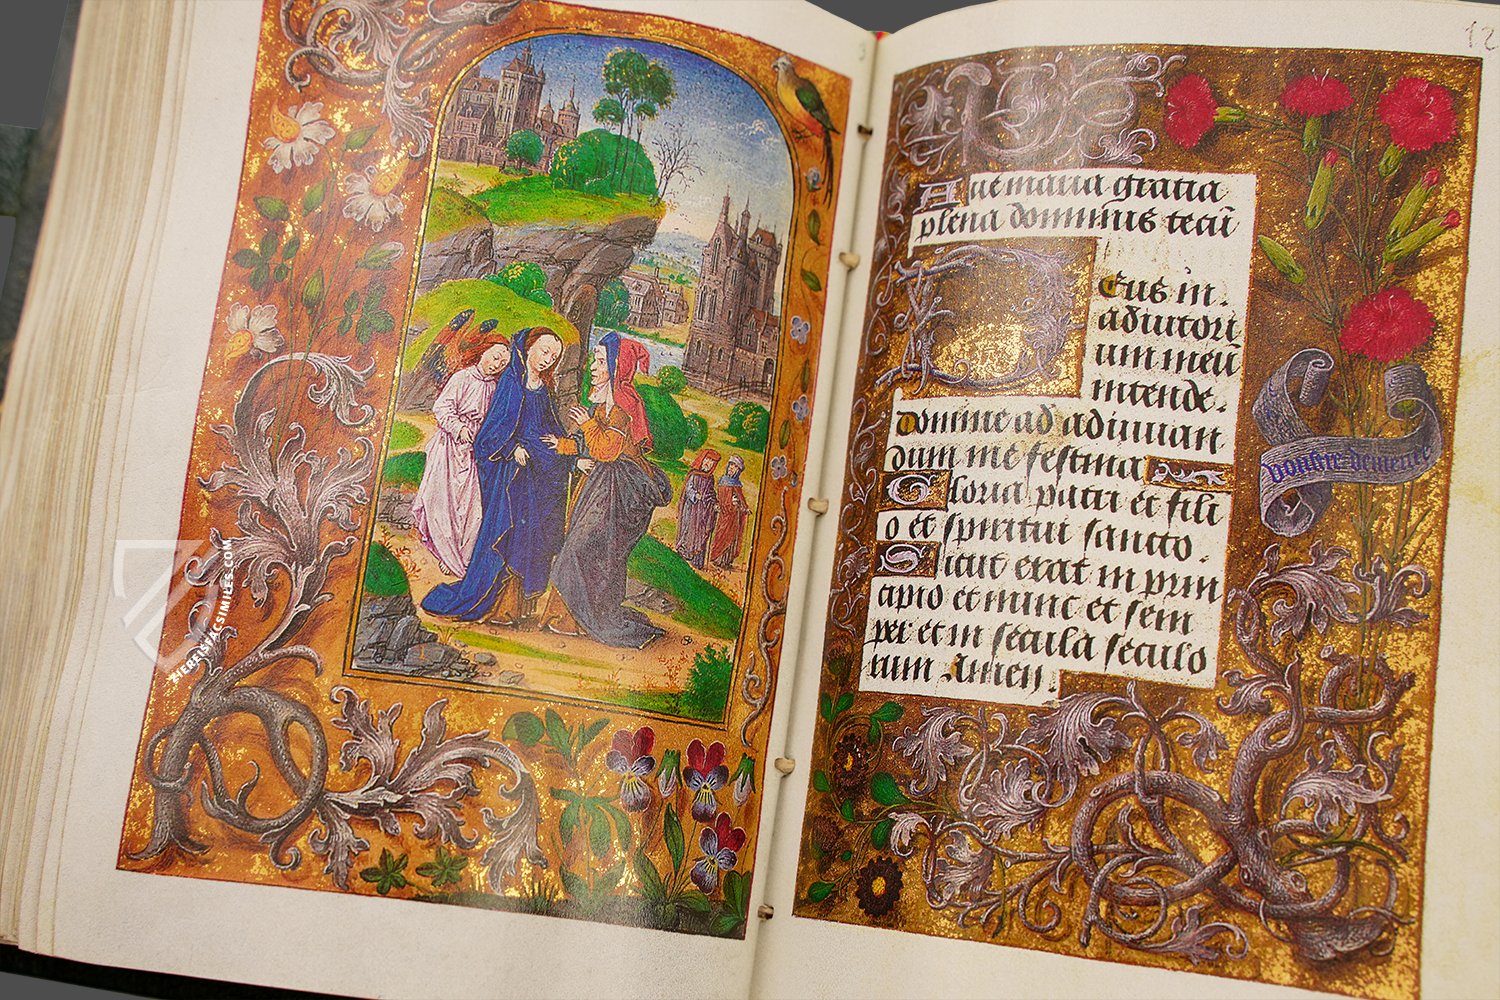 ZIEREISFACSIMILES.COM
12
Aue maria gracia
plena dominus tecū
Deus in.
adiutori
um meū
intende.
Domine ad adiuuan
dum me festina
Gloria patri et fili
o et spiritui sancto.
Sicut erat in prin
cipio et nunc et sem
per et in secula seculo
rum Amen.